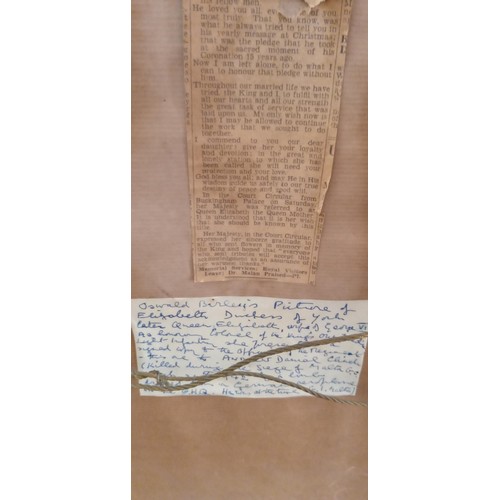 his fellow men.
He loved you all, every one of you
most truly. That you know, was
what he always tried to tell you in
his yearly message at Christmas;
that was the pledge that he took
at the sacred moment of his
Coronation 15 years ago.
Now I am left alone, to do what I
can to honour that pledge without
him.
Throughout our married life we have
tried, the King and I, to fulfil with
all our hearts and all our strength
the great task of service that was
laid upon us. My only wish now is
that I may be allowed to continue
the work that we sought to do
together.
I commend to you our dear
daughter; give her your loyalty
and devotion; in the great and
lonely station to which she has
been called she will need your
protection and your love.
God bless you all; and may He in His
wisdom guide us safely to our true
destiny of peace and good will.
In the Court Circular from
Buckingham Palace on Saturday
her Majesty was referred to as
Queen Elizabeth the Queen Mother.
It is understood that it is her wish
that she should be known by this
title.
Her Majesty, in the Court Circular,
expressed her sincere gratitude to
all who sent flowers in memory of
the King and hoped that
and friends will accept this
acknowledgment as an assurance of
her warmest thanks.
Memorial Services; Royal Visitors
Leave; Dr. Malan Praises
Oswald Birley's Picture of
Elizabeth Duchess of York
Later Queen Elizabeth, wife of George VI
As Colonel of the Kings Own
Light Infantry she
upon the Officers of the Regiment
this one to Daniel
(Killed during the Siege of Malta